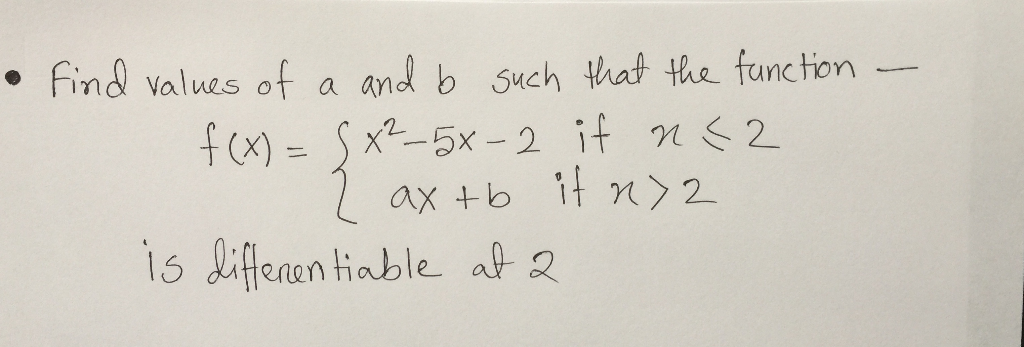 • Find values of a and b such that the function —
f(x) = { x²-5x-2 if x ≤ 2
ax+b if x>2
is differentiable at 2